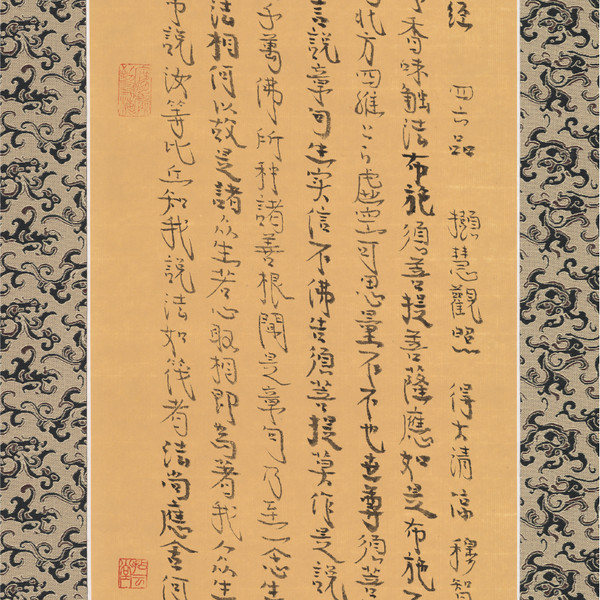 经 四六品 慧觀照 得大清 穆智
香味触法布施须菩提菩薩應如是布施不
北方四維上下虚空可思量不不也世尊须菩
言說章句生实信不佛告須菩提莫作是說
千萬佛所种諸善根聞是章句乃至一念生
法相何以故是諸众生若心取相即為著我人众生
說汝等比丘知我說法如筏者法尚應舍何